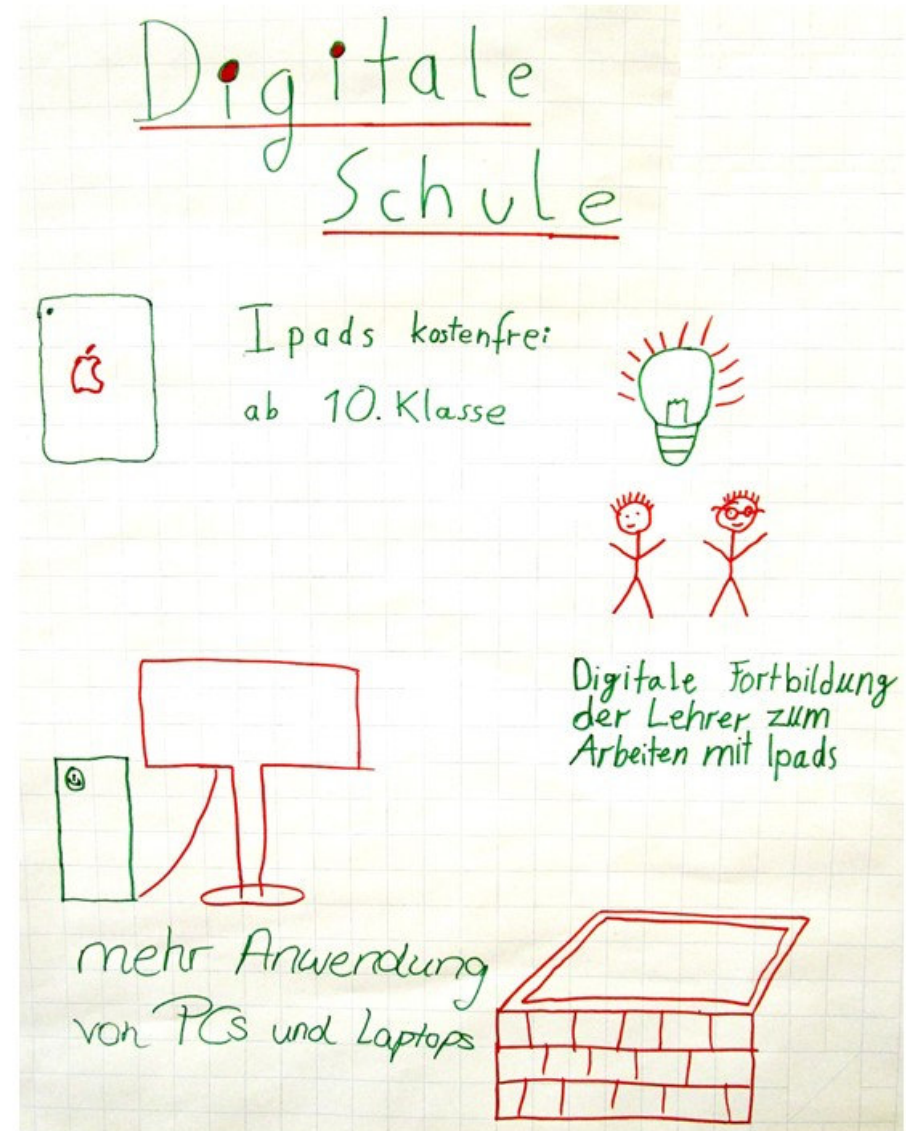 Digitale
Schule
Ipads kostenfrei
ab 10. Klasse
Digitale Fortbildung
der Lehrer zum
Arbeiten mit Ipads
mehr Anwendung
von PCs und Laptops